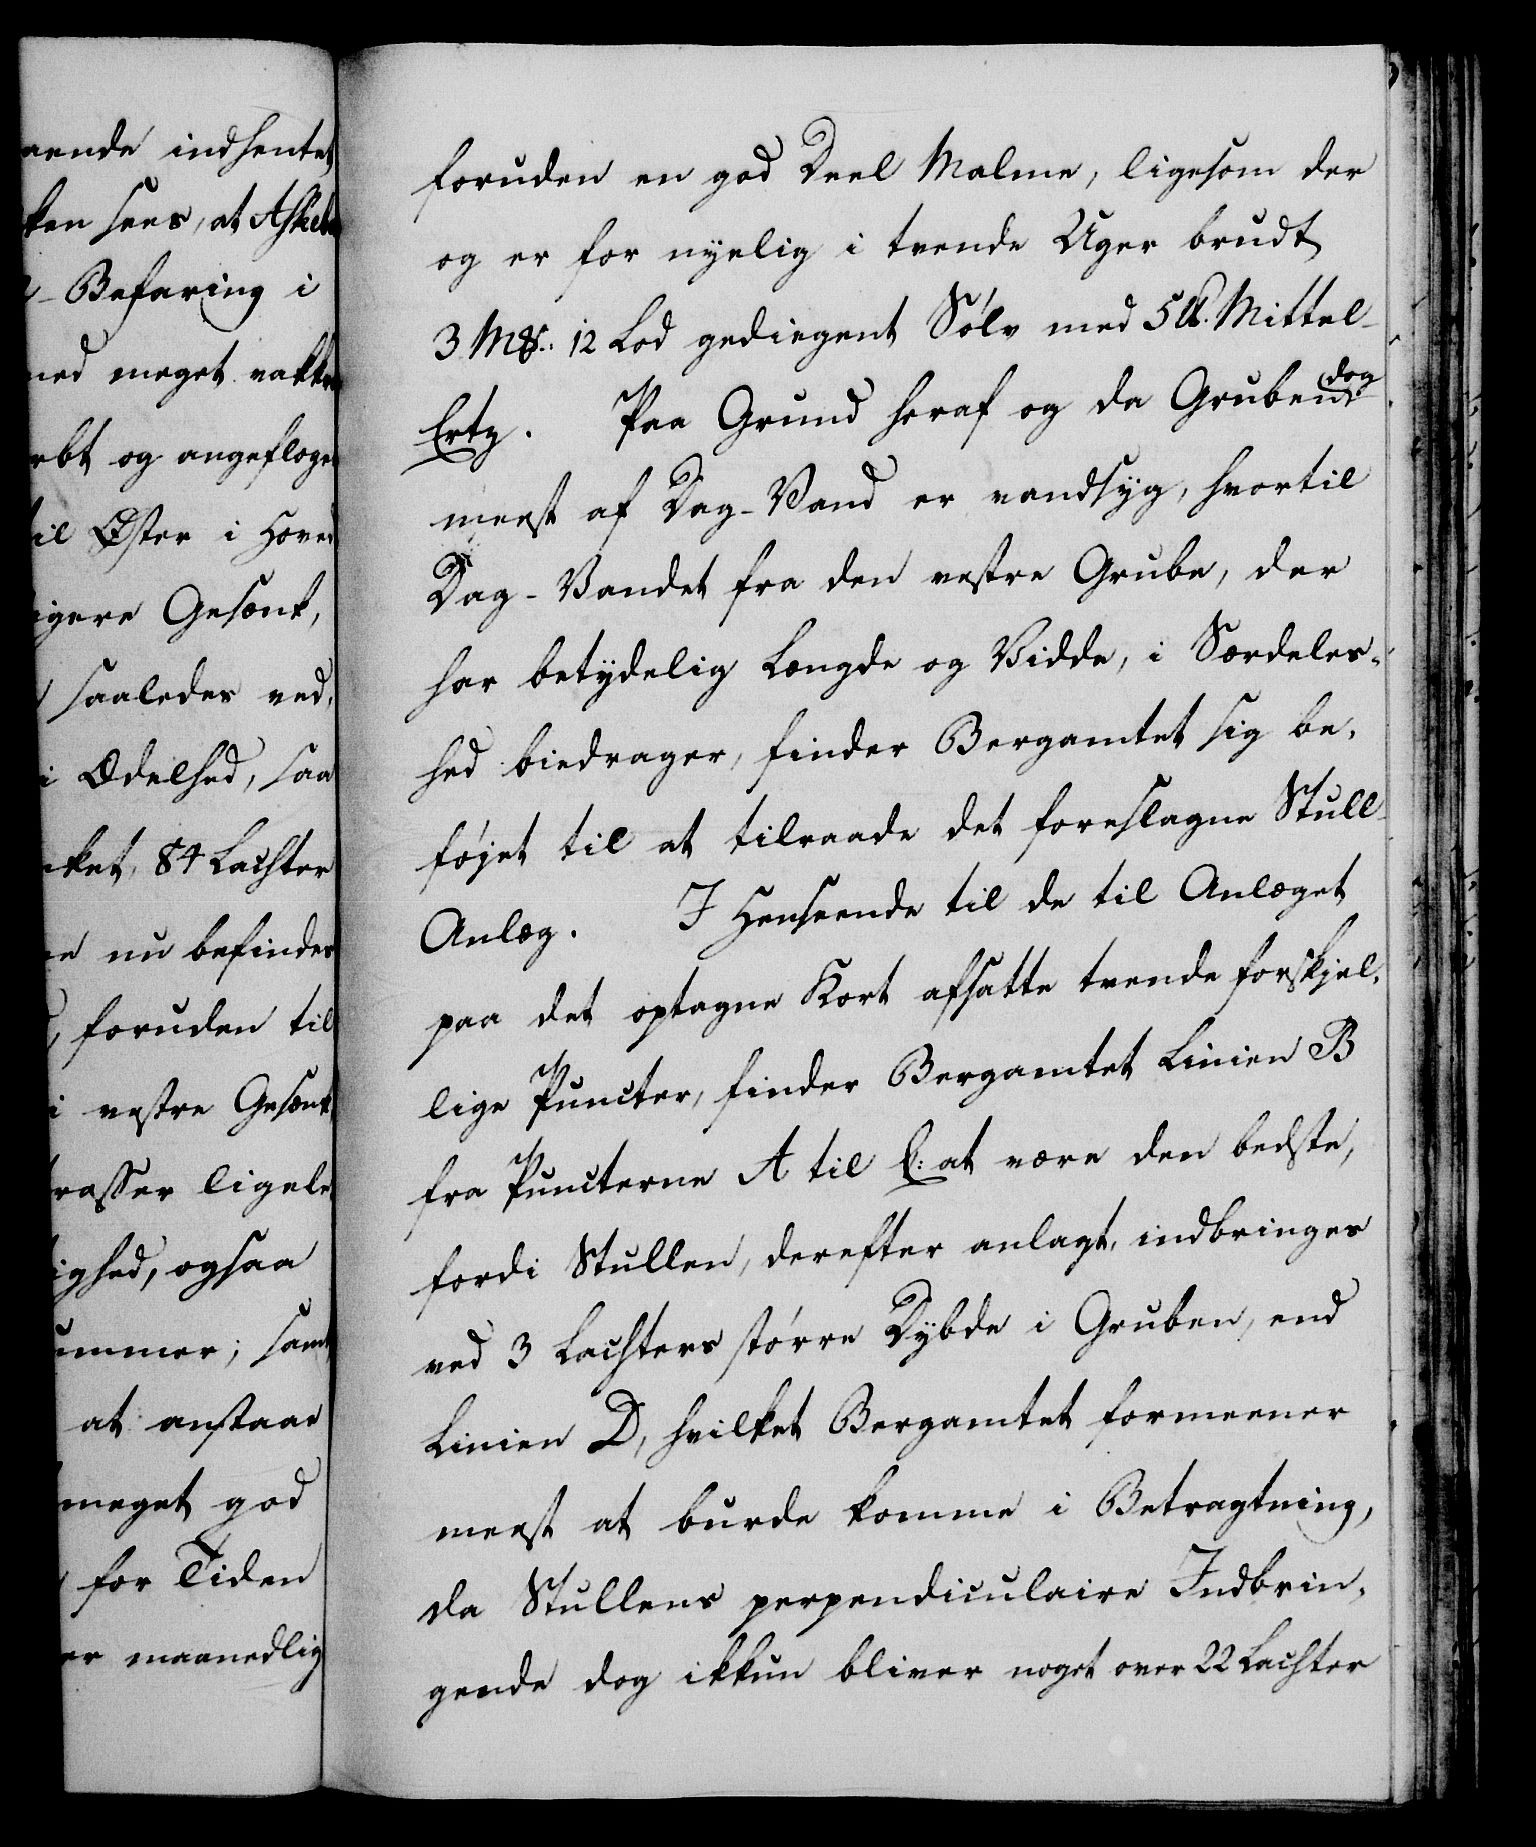 aende indhentet
ken sees, at Askeb
- Befaring i
med meget vakk
ebt og angefloge
til Øster i Hoved
igere Gesænk,
saaledes ved,
i Ædelhed, saa
ket, 84 Lachter
e nu befindes
, foruden til
i vestre Gesænk
rasser ligele
ighed, ogsaa
ummer; samt
at anstaae
meget god
for Tiden
er maanedlig
foruden en god Deel Malme, ligesom der
og er for nyelig i tvende Uger brudt
3 Mk: 12 Lod gediegent Sølv med 5 ℔. Mittel-
Ertz. Paa Grund heraf og da Gruben dog
meest af Dag-Vand er vandsyg, hvortil
Dag-Vandet fra den vestre Grube, der
har betydelig Længde og Vidde, i Særdeles-
hed biedrager, finder Bergamtet sig be-
føjet til at tilraade det foreslagne Stull-
Anlæg. I Henseende til de til Anlæget
paa det optagne Kort afsatte tvende forskjel-
lige Puncter, finder Bergamtet Linien B
fra Puncterne A til C: at være den bedste,
fordi Stullen, derefter anlagt, indbringes
ved 3 Lachters større Dybde i Gruben, end
Linien D, hvilket Bergamtet formeener
meest at burde komme i Betragtning,
da Stullens perpendiculaire Indbrin-
gende dog ikkun bliver noget over 22 Lachter